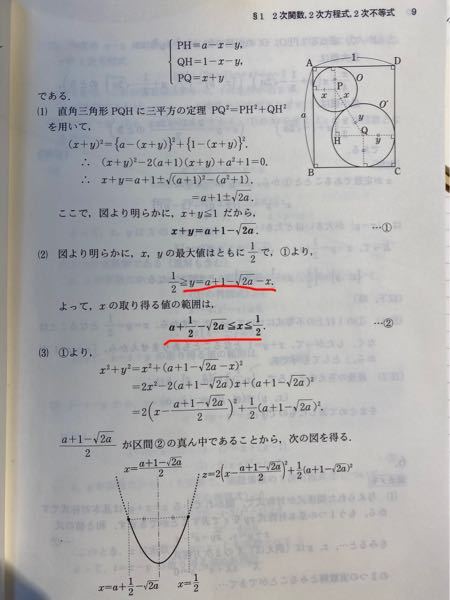 §1 2次関数, 2次方程式, 2次不等式 9
PH=a−x−y,
QH=1−x−y,
PQ=x+y
である.
A 1 D
O
P
x x
a
O′
y
H Q
y
B C
(1) 直角三角形PQHに三平方の定理 PQ²=PH²+QH²
を用いて,
(x+y)²={a−(x+y)}²+{1−(x+y)}².
∴ (x+y)²−2(a+1)(x+y)+a²+1=0.
∴ x+y=a+1±√(a+1)²−(a²+1).
=a+1±√2a.
ここで, 図より明らかに, x+y≦1 だから,
x+y=a+1−√2a. …①
(2) 図より明らかに, x, y の最大値はともに 1/2 で, ①より,
1/2≧y=a+1−√2a−x.
よって, x の取り得る値の範囲は,
a+1/2−√2a≦x≦1/2. …②
(3) ①より,
x²+y²=x²+(a+1−√2a−x)²
=2x²−2(a+1−√2a)x+(a+1−√2a)²
=2(x−(a+1−√2a)/2)²+1/2(a+1−√2a)².
(a+1−√2a)/2 が区間②の真ん中であることから, 次の図を得る.
x=(a+1−√2a)/2 z=2(x−(a+1−√2a)/2)²+1/2(a+1−√2a)²
x=a+1/2−√2a x=1/2